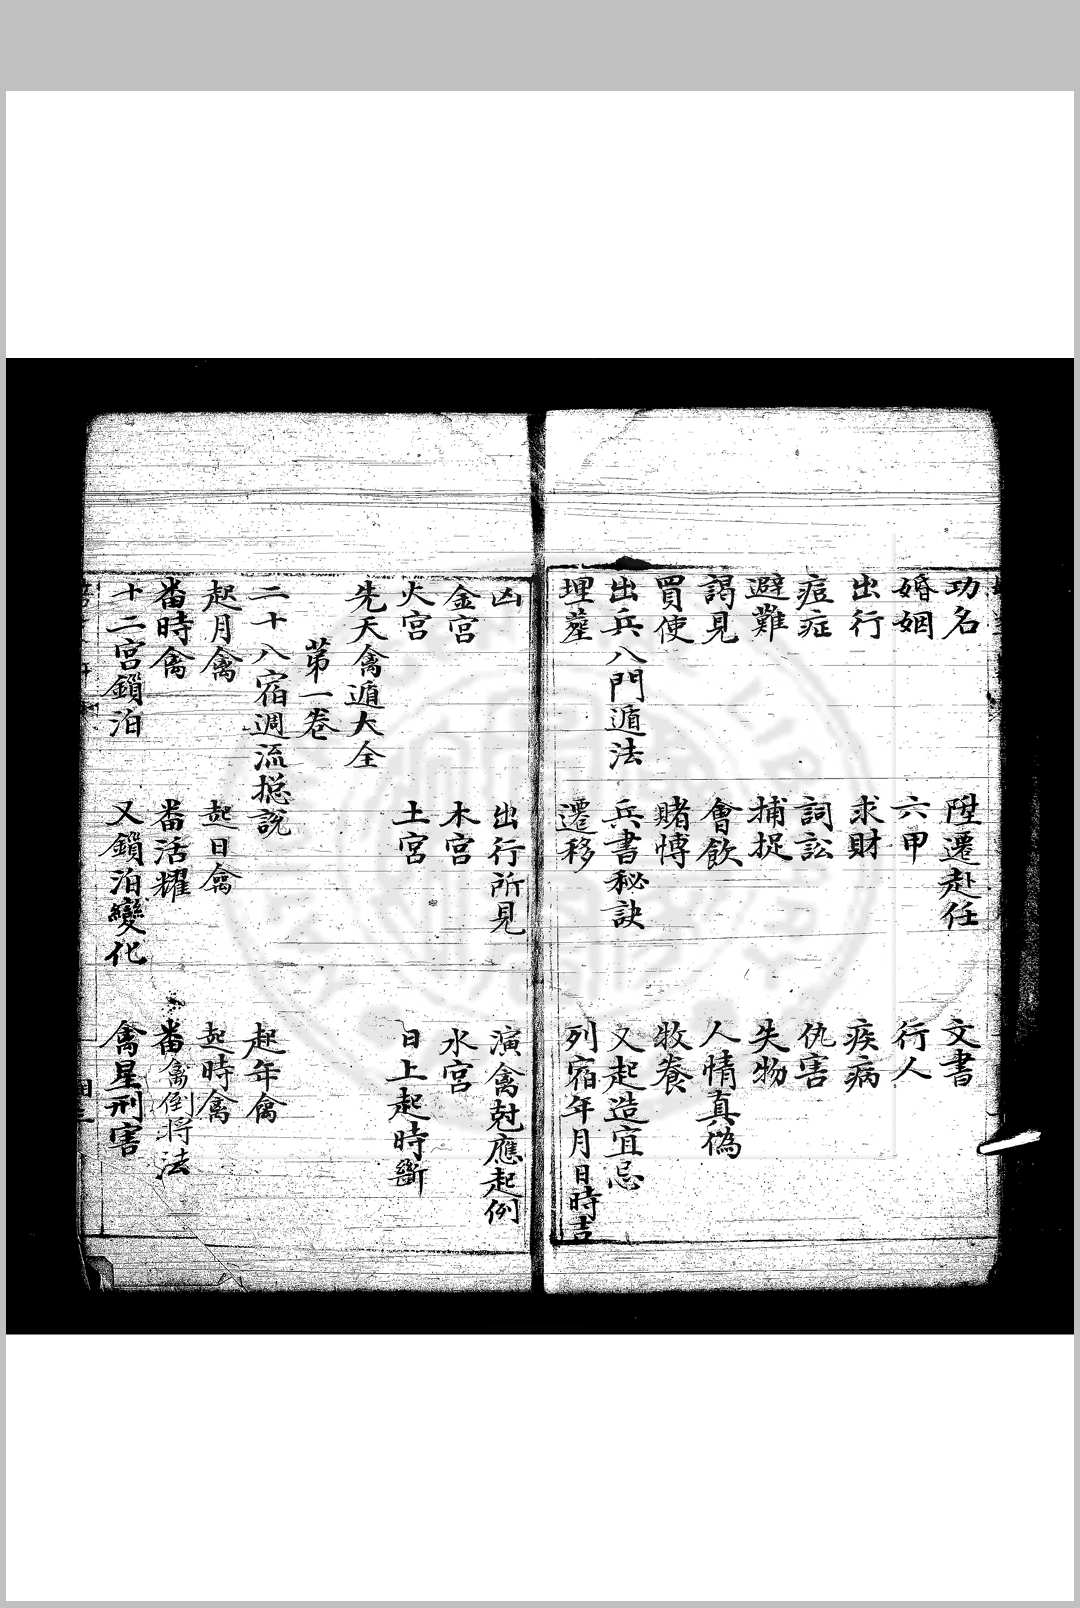 功名 陞遷赴任 文書
婚姻 六甲 行人
出行 求財 疾病
痘症 詞訟 仇害
避難 捕捉 失物
謁見 會飲 人情真偽
買使 賭愽 牧養
出兵八門遁法 兵書秘訣 又起造宜忌
埋塟 遷移 列宿年月日時吉
凶 出行所見 演禽尅應起例
金宮 木宮 水宮
火宮 土宮 日上起時斷
先天禽遁大全
第一卷
二十八宿週流捴說 起年禽
起月禽 起日禽 起時禽
畨時禽 畨活耀 畨禽倒將法
十二宮鎖泊 又鎖泊變化 禽星刑害